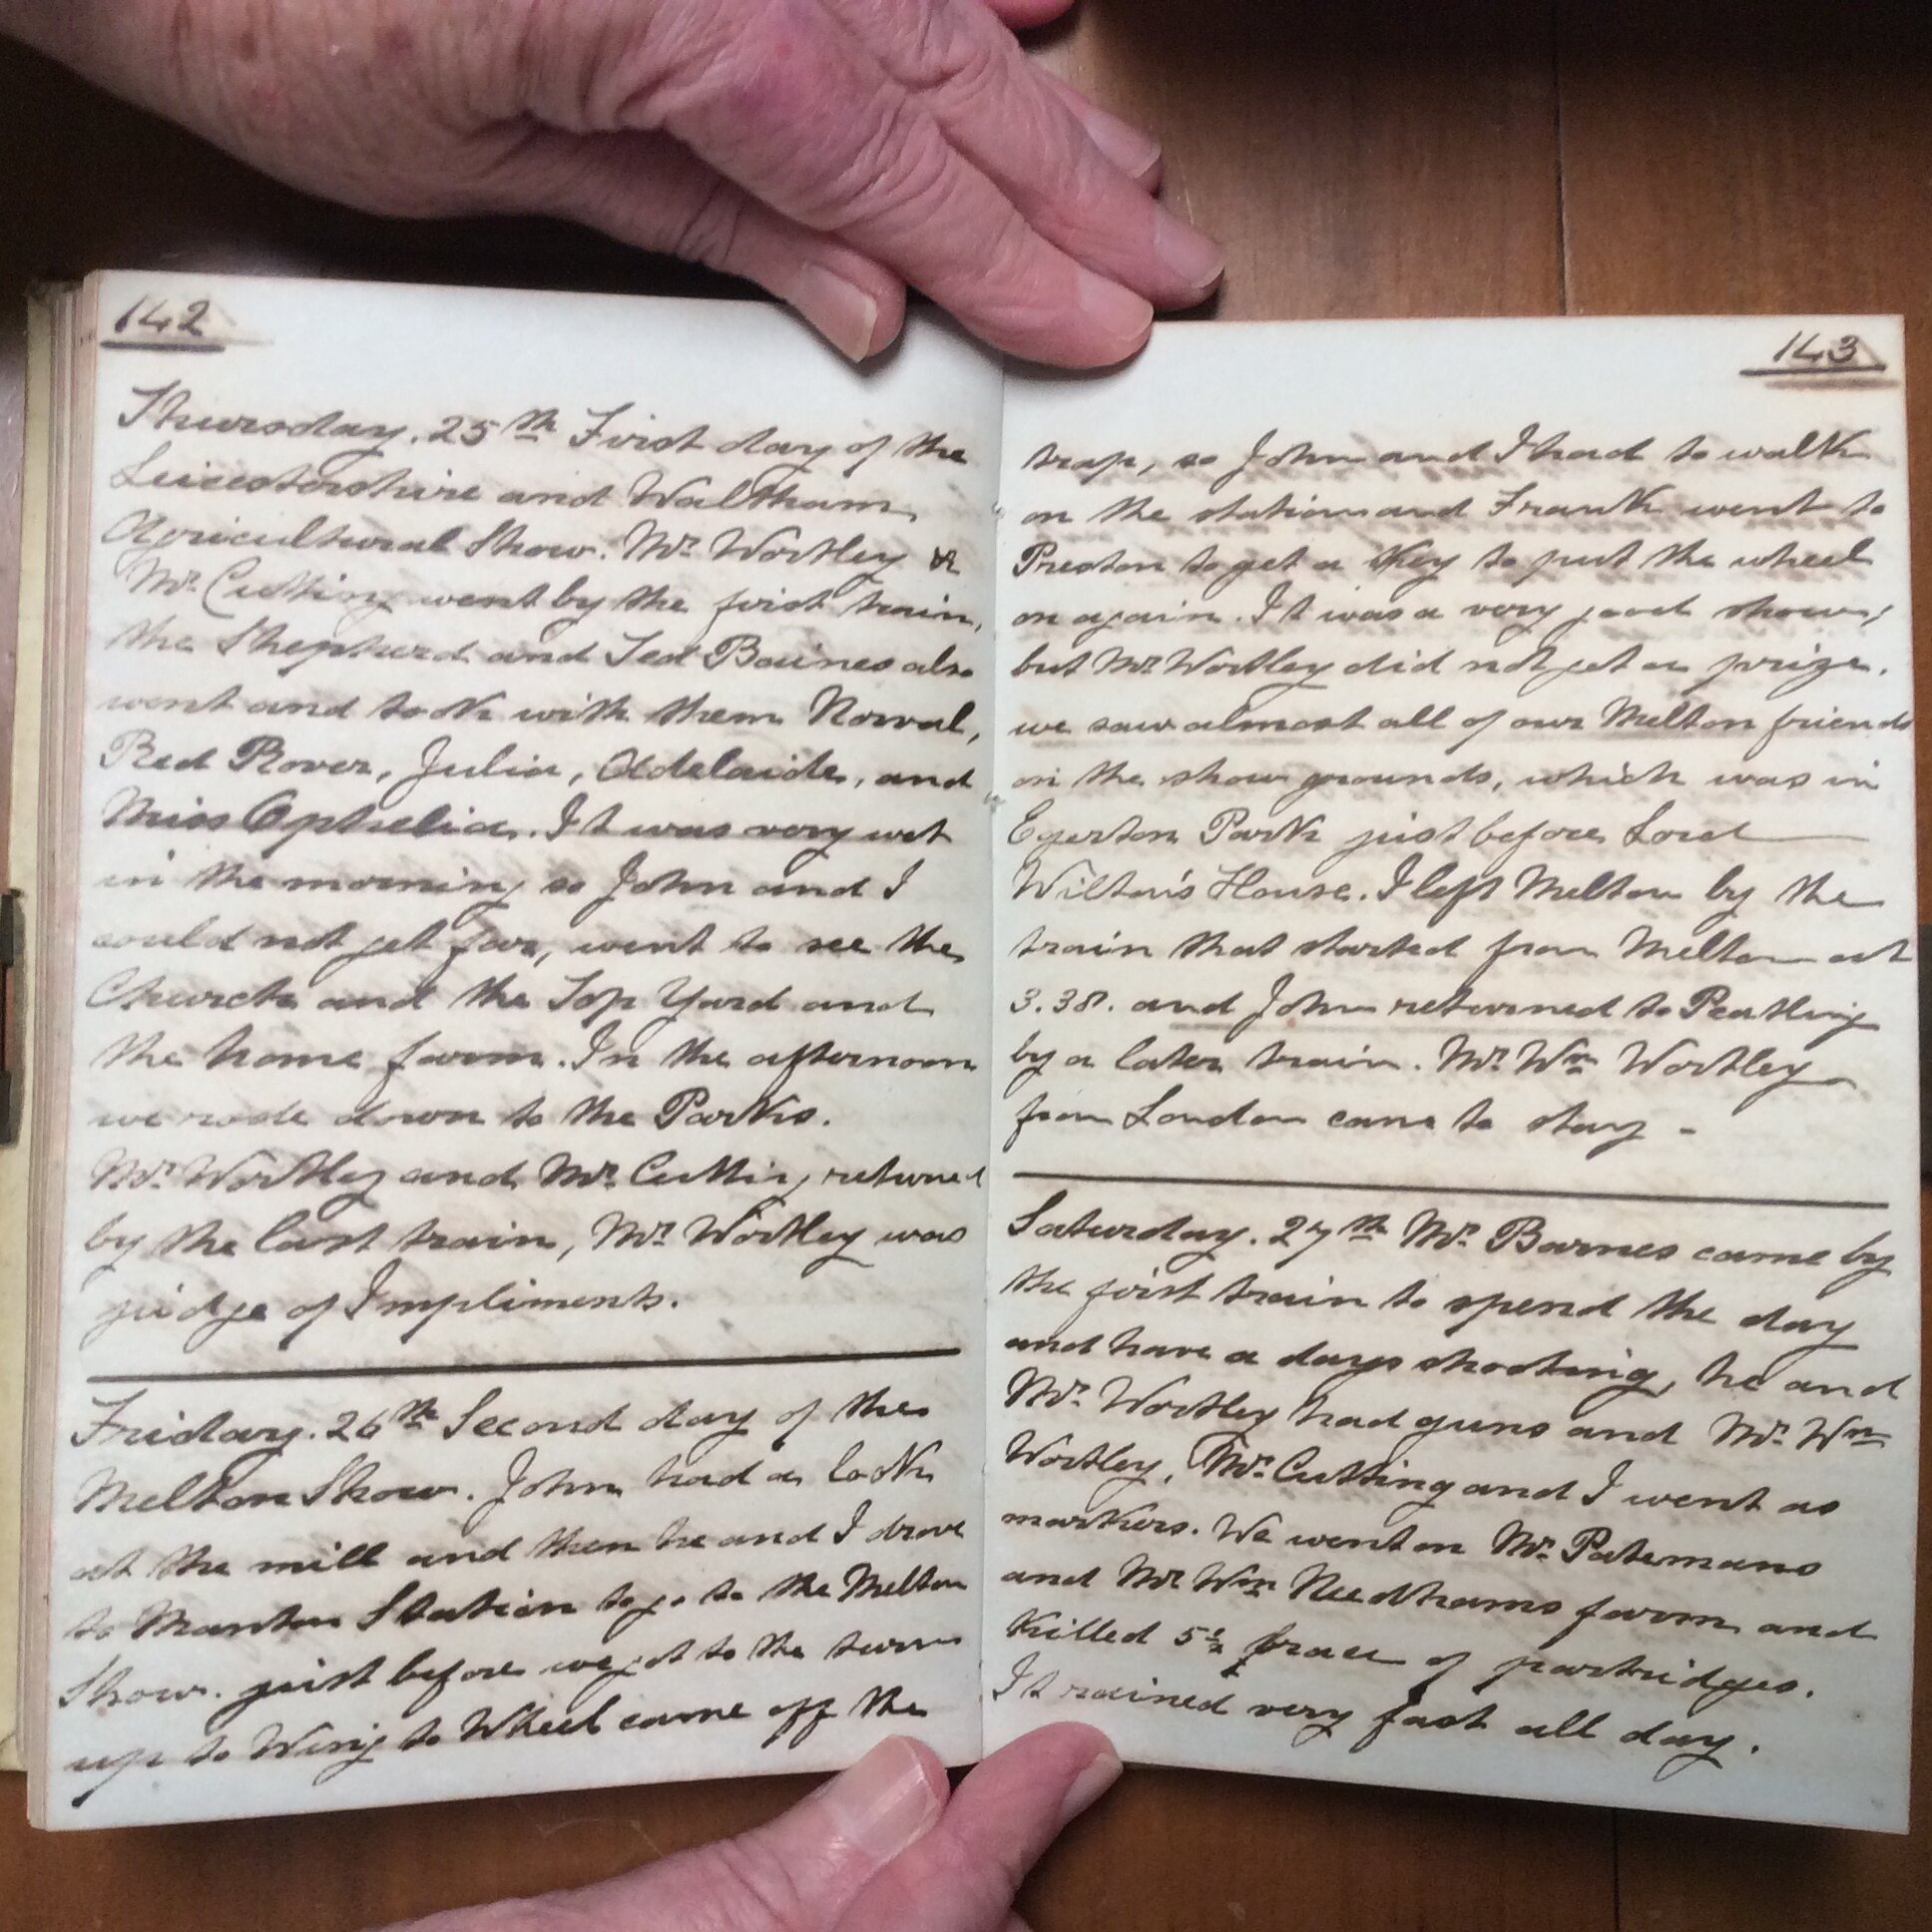 142
Thursday. 25th First day of the
Leicestershire and Waltham
Agricultural Show. Mr Wortley &
Mr. Cutting went by the first train,
the Shepherd and Ted Baines also
went and took with them Norval,
Red Rover, Julia, Adelaide, and
Miss Ophelia. It was very wet
in the morning so John and I
could not get far, went to see the
Church and the Top Yard and
the home farm. In the afternoon
we rode down to the Parks.
Mr. Wortley and Mr. Cutting returned
by the last train, Mr. Wortley was
judge of Impliments.
Friday. 26th Second day of the
Melton Show. John had a look
at the mill and then he and I drove
to Manton Station to go to the Melton
Show. just before we got to the turn
up to Wing to Wheel came off the
143
trap, so John and I had to walk
on the station and Frank went to
Preston to get a Key to put the wheel
on again. It was a very good show,
but Mr Wortley did not get a prize.
we saw almost all of our Melton friends
on the show grounds, which was in
Egerton Park just before Lord
Wilton's House. I left Melton by the
train that started from Melton at
3.38. and John returned to Peatling
by a later train. Mr. Wm Wortley
from London came to stay -
Saturday. 27th Mr. Barnes came by
the first train to spend the day
and have a days shooting, he and
Mr. Wortley had guns and Mr. Wm
Wortley, Mr. Cutting and I went as
markers. We went on Mr. Patemans
and Mr Wm Needhams farm and
Killed 5½ brace of partridges.
It rained very fast all day.